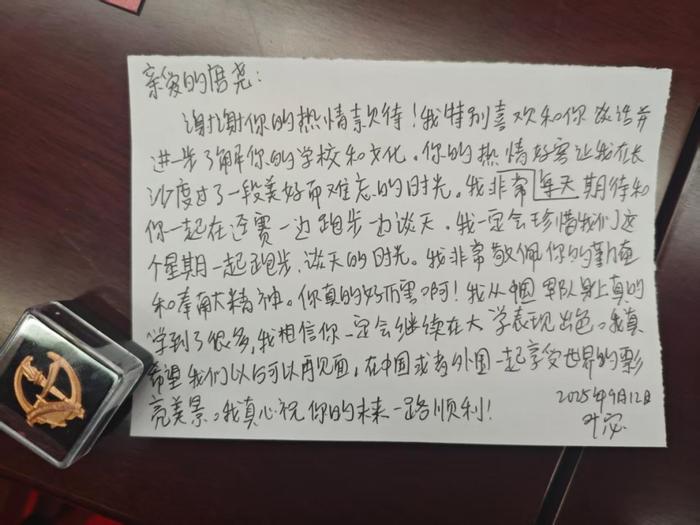 亲爱的唐尧：
谢谢你的热情款待！我特别喜欢和你说话并
进一步了解你的学校和文化。你的热情好客让我在长
沙度过了一段美好而难忘的时光。我非常每天期待和
你一起在 赛一边跑步边谈天。我一定会珍惜我们这
个星期一起跑步、谈天的时光。我非常敬佩你的勤
和奉献大精神。你真的好厉害啊！我从中国军队身上真的
学到了很多，我相信你一定会继续在大学表现出色。我真
希望我们以后可以再见面，在中国或者外国一起享受世界的漂
亮美景。我真心祝你的未来一路顺利！
2025年9月12日
叶